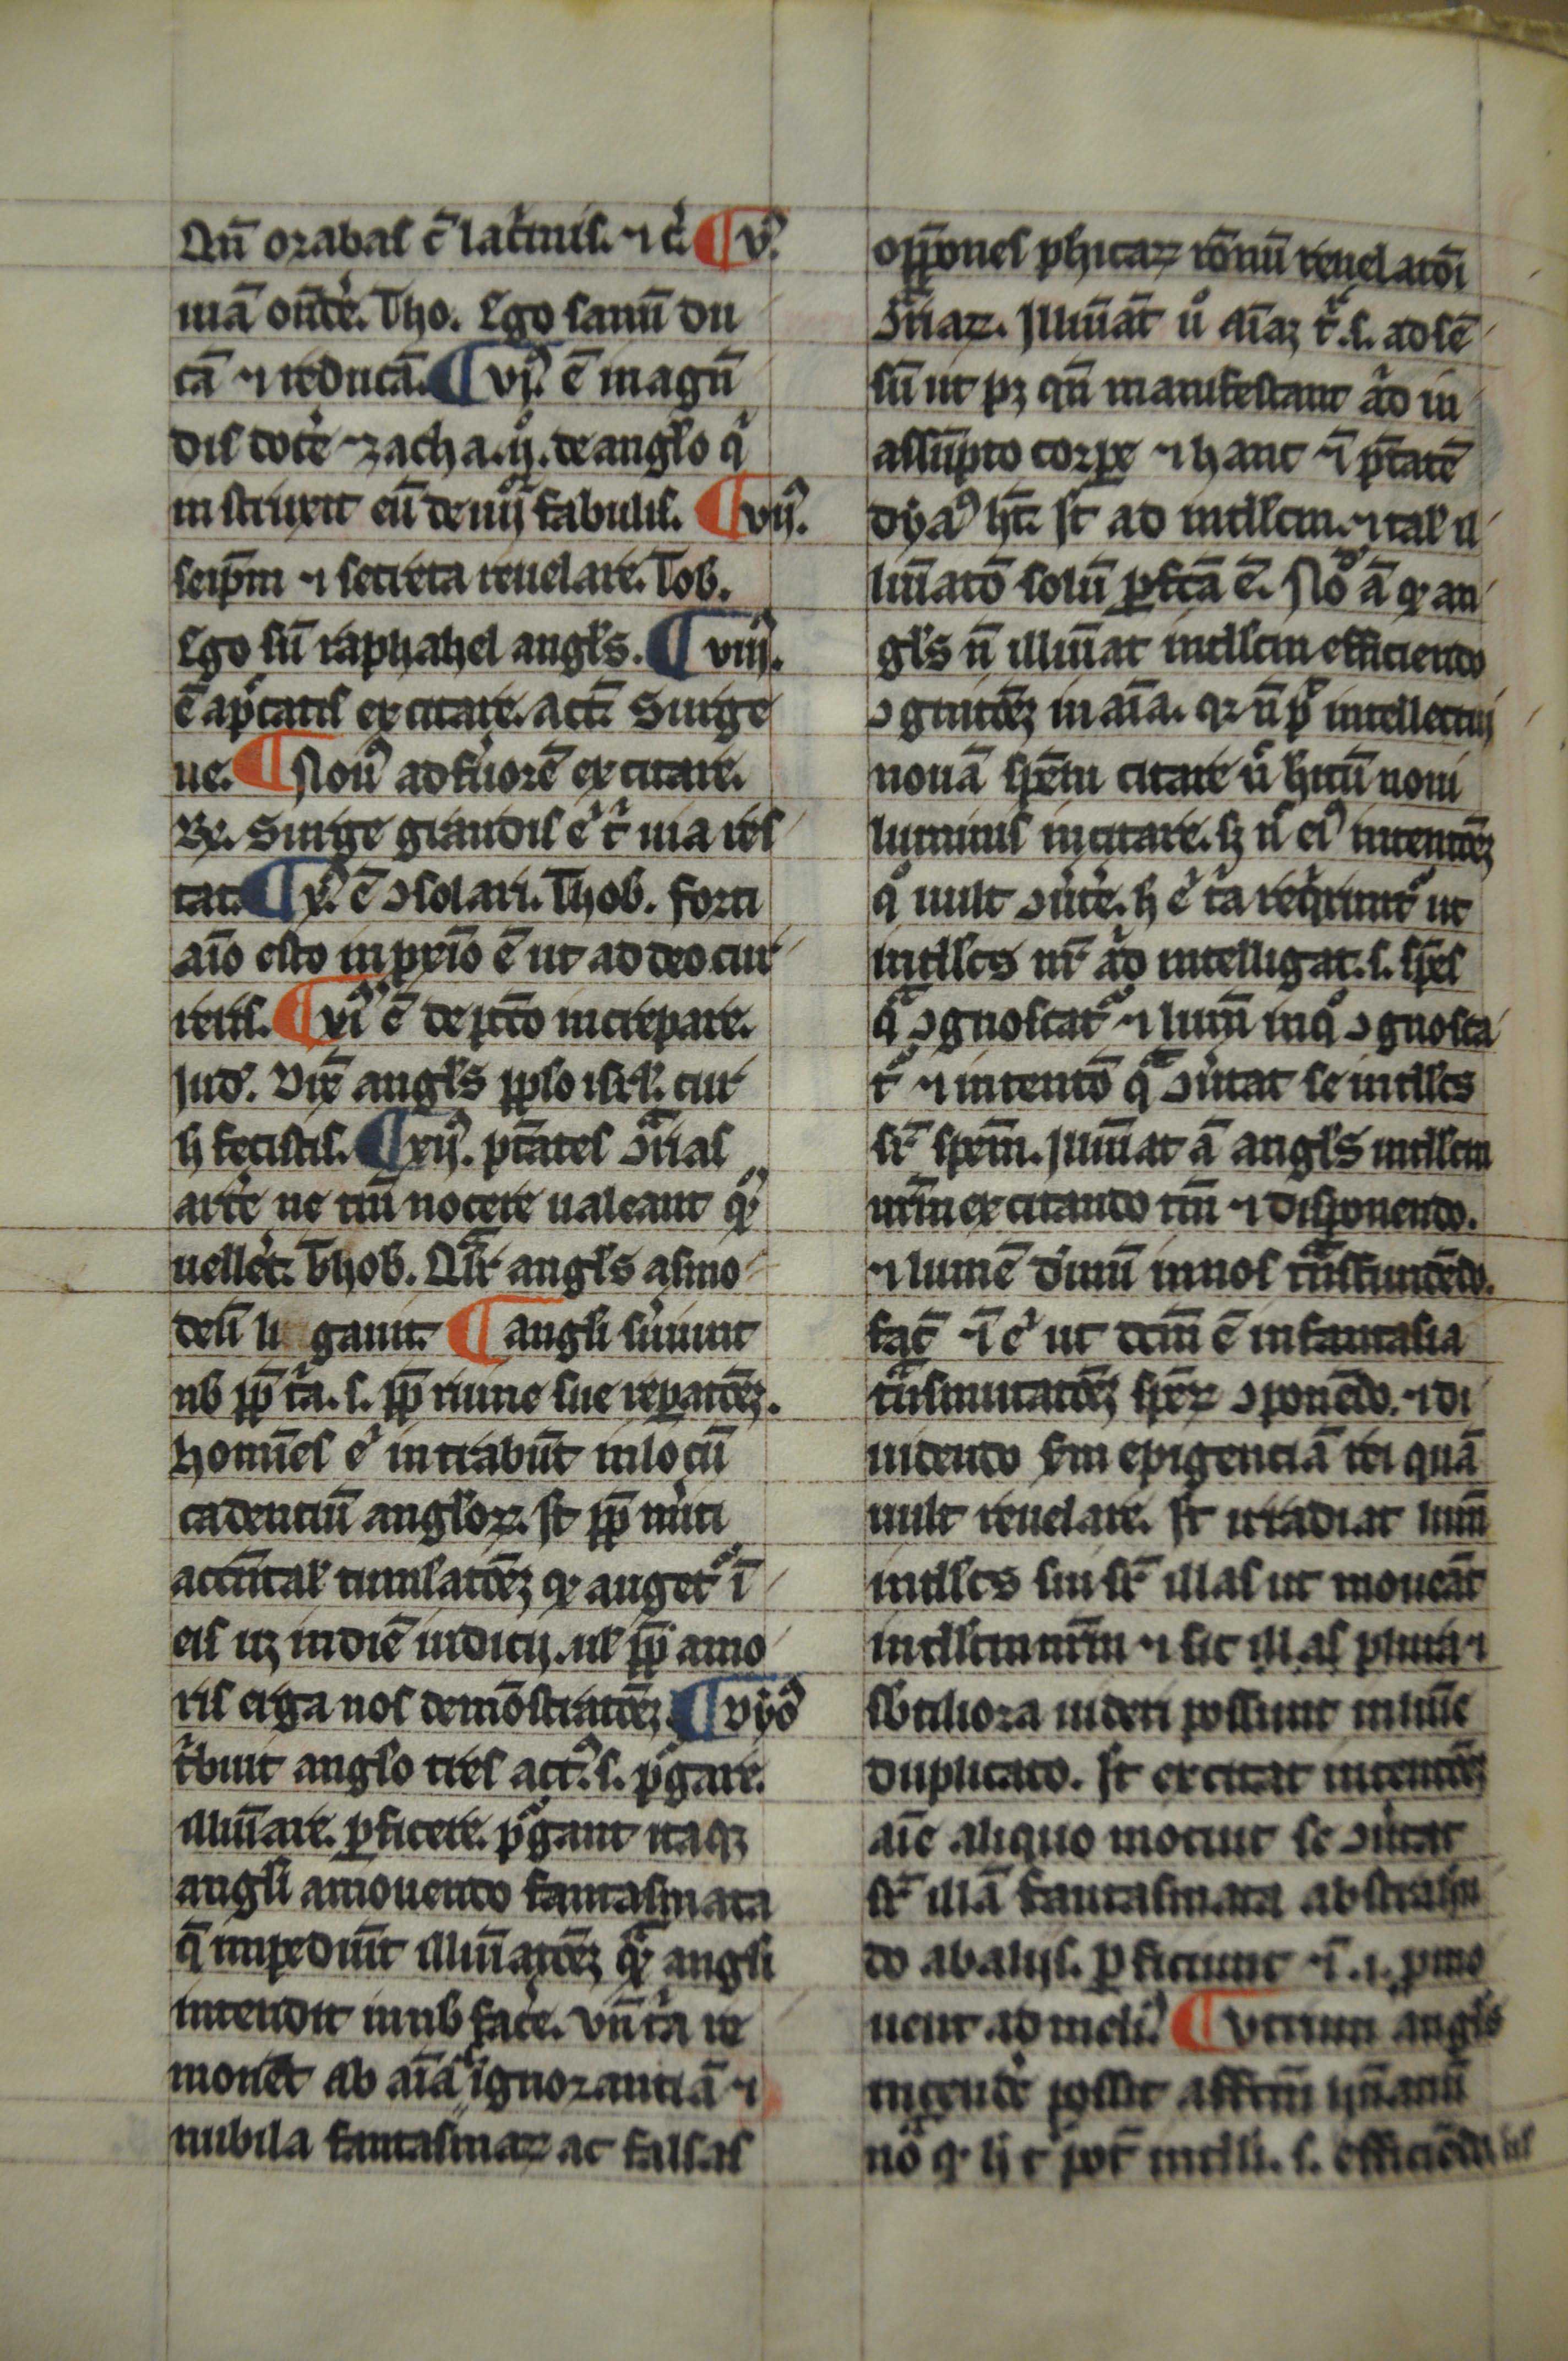 Qn̄ orabas c̄ lac̓mis. ⁊ c̓. ¶ v᷒.
uiā on̄de᷒. Tho. Ego sanū du
cā ⁊ reducā. ¶ vj᷒. ē in agn̄
dis doce᷒ zacha. ij. de angl̓o q̓
instruxit eū de iiij fabulis. ¶ vij᷒.
seip̄m ⁊ secreta reuelare. Tob.
Ego sū raphahel angl̓s. ¶ viij᷒.
excitare. act᷒. Surge
ue. ¶ Nonu᷒ ad feruorē excitare.
Re. Surge grandis e᷒ t᷒ uia res
tat. ¶ x᷒. ē ɔsolari. Thob. forti
aīo esto in pxīo ē ut a deo cur
reris. ¶ xi᷒ ē de pcc̄o increpare.
Jud᷒. Dix̄ angl̓s ppl̓o isrl̓. cur
h̄ fecistis. ¶ xij᷒. ptāates ɔ̄rias
arce᷒ ne tm̄ nocere ualeant q̄
uellēt. Thob. angl̓s asmo
deū li gauit ¶ angl̓i s̓uiunt
nb̓ pp̄ t̓a. s. pp̄ ruine sue repatōez.
homīes e᷒ intrabūt in locū
cadenciū angl̓oꝝ. it̄ pp̄ m̓iti
accn̄tal̓ cumlatōez q̓ auget᷒ ī
eis uz in diē iudicij. ul̓ pp̄ amo
ris erga nos demōstratōez ¶ Dyo᷒
t̓buit angl̓o tres act᷒. s. p᷒gare.
illuīare. ꝑficere. p᷒gant itaqz
angl̓i amouendo fantasmata
q̄ impediūt illuīatōez angl̓i
intendit in nb̓ face᷒. Vn̄ t̓a re
monet ab aīa ignorantiā ⁊
nubila fantasmaꝝ ac falsas
opp̄ones phicaꝝ
ɔ̄riaꝝ. Illuīat u᷒ aīaz t᷒. s. ad sē
sū ut pz qn̄ manifestant a᷒d in
assūpto corꝑe ⁊ hanc ptāatē
dya᷒ ht̄. it̄ ad intllc̄m. ⁊ tal̓ il
luīatō solū ꝑfcā ē. Nō ā q̓ an
gl̓s n̄ illuīat intllc̄m efficiendo
ɔgnitōez in aīa. qꝛ n̄ p̄t intellectuj
nouā sp̄em creare
luminis incitare. sz n̄ ei᷒ intentōez
q᷒ uult ɔ̓ute᷒. h e᷒ t̓a req̓runt᷒ ut
intllc̄s nr̄ a᷒d intelligat. s. sp̄es
q̄ ɔgnoscat᷒ ⁊ lumn̄ in q᷒ ɔgnosca
t᷒ ⁊ intentō q̄ ɔ̓utat se intllc̄s
sr̄ sp̄em. Illuīat ā angl̓s intllc̄m
nr̄m excitando tm̄ ⁊ disponendo.
⁊ lumē d̓inū in nos tn̄sfundēdo.
fac̄ ⁊ī e᷒ ut dcm̄ ē in fantasia
tn̄smutatōez sp̄eꝝ ɔponēdo. ⁊ di
uidendo s̄m epigenciā rei quā
uult reuelare. it̄ irradiat lumn̄
intllc̄s sui sr̄ illas ut moueāt
intllc̄m nr̄m ⁊ sic illas plura ⁊
sb̓tiliora uideri possunt in luīe
duplicato. it̄ excitat intentōez
aīe aliquo motiuit se ɔ̓utat
sr̄ illā fantasmata abstrahn̄
do ab alijs. ꝑficiunt ⁊ī .i. ꝓmo
uent ad meli᷒. ¶ Vtrum angl̓s
incende᷒ possit affcm̄ hūanū
nō q̓ intlli. s. efficiēdo